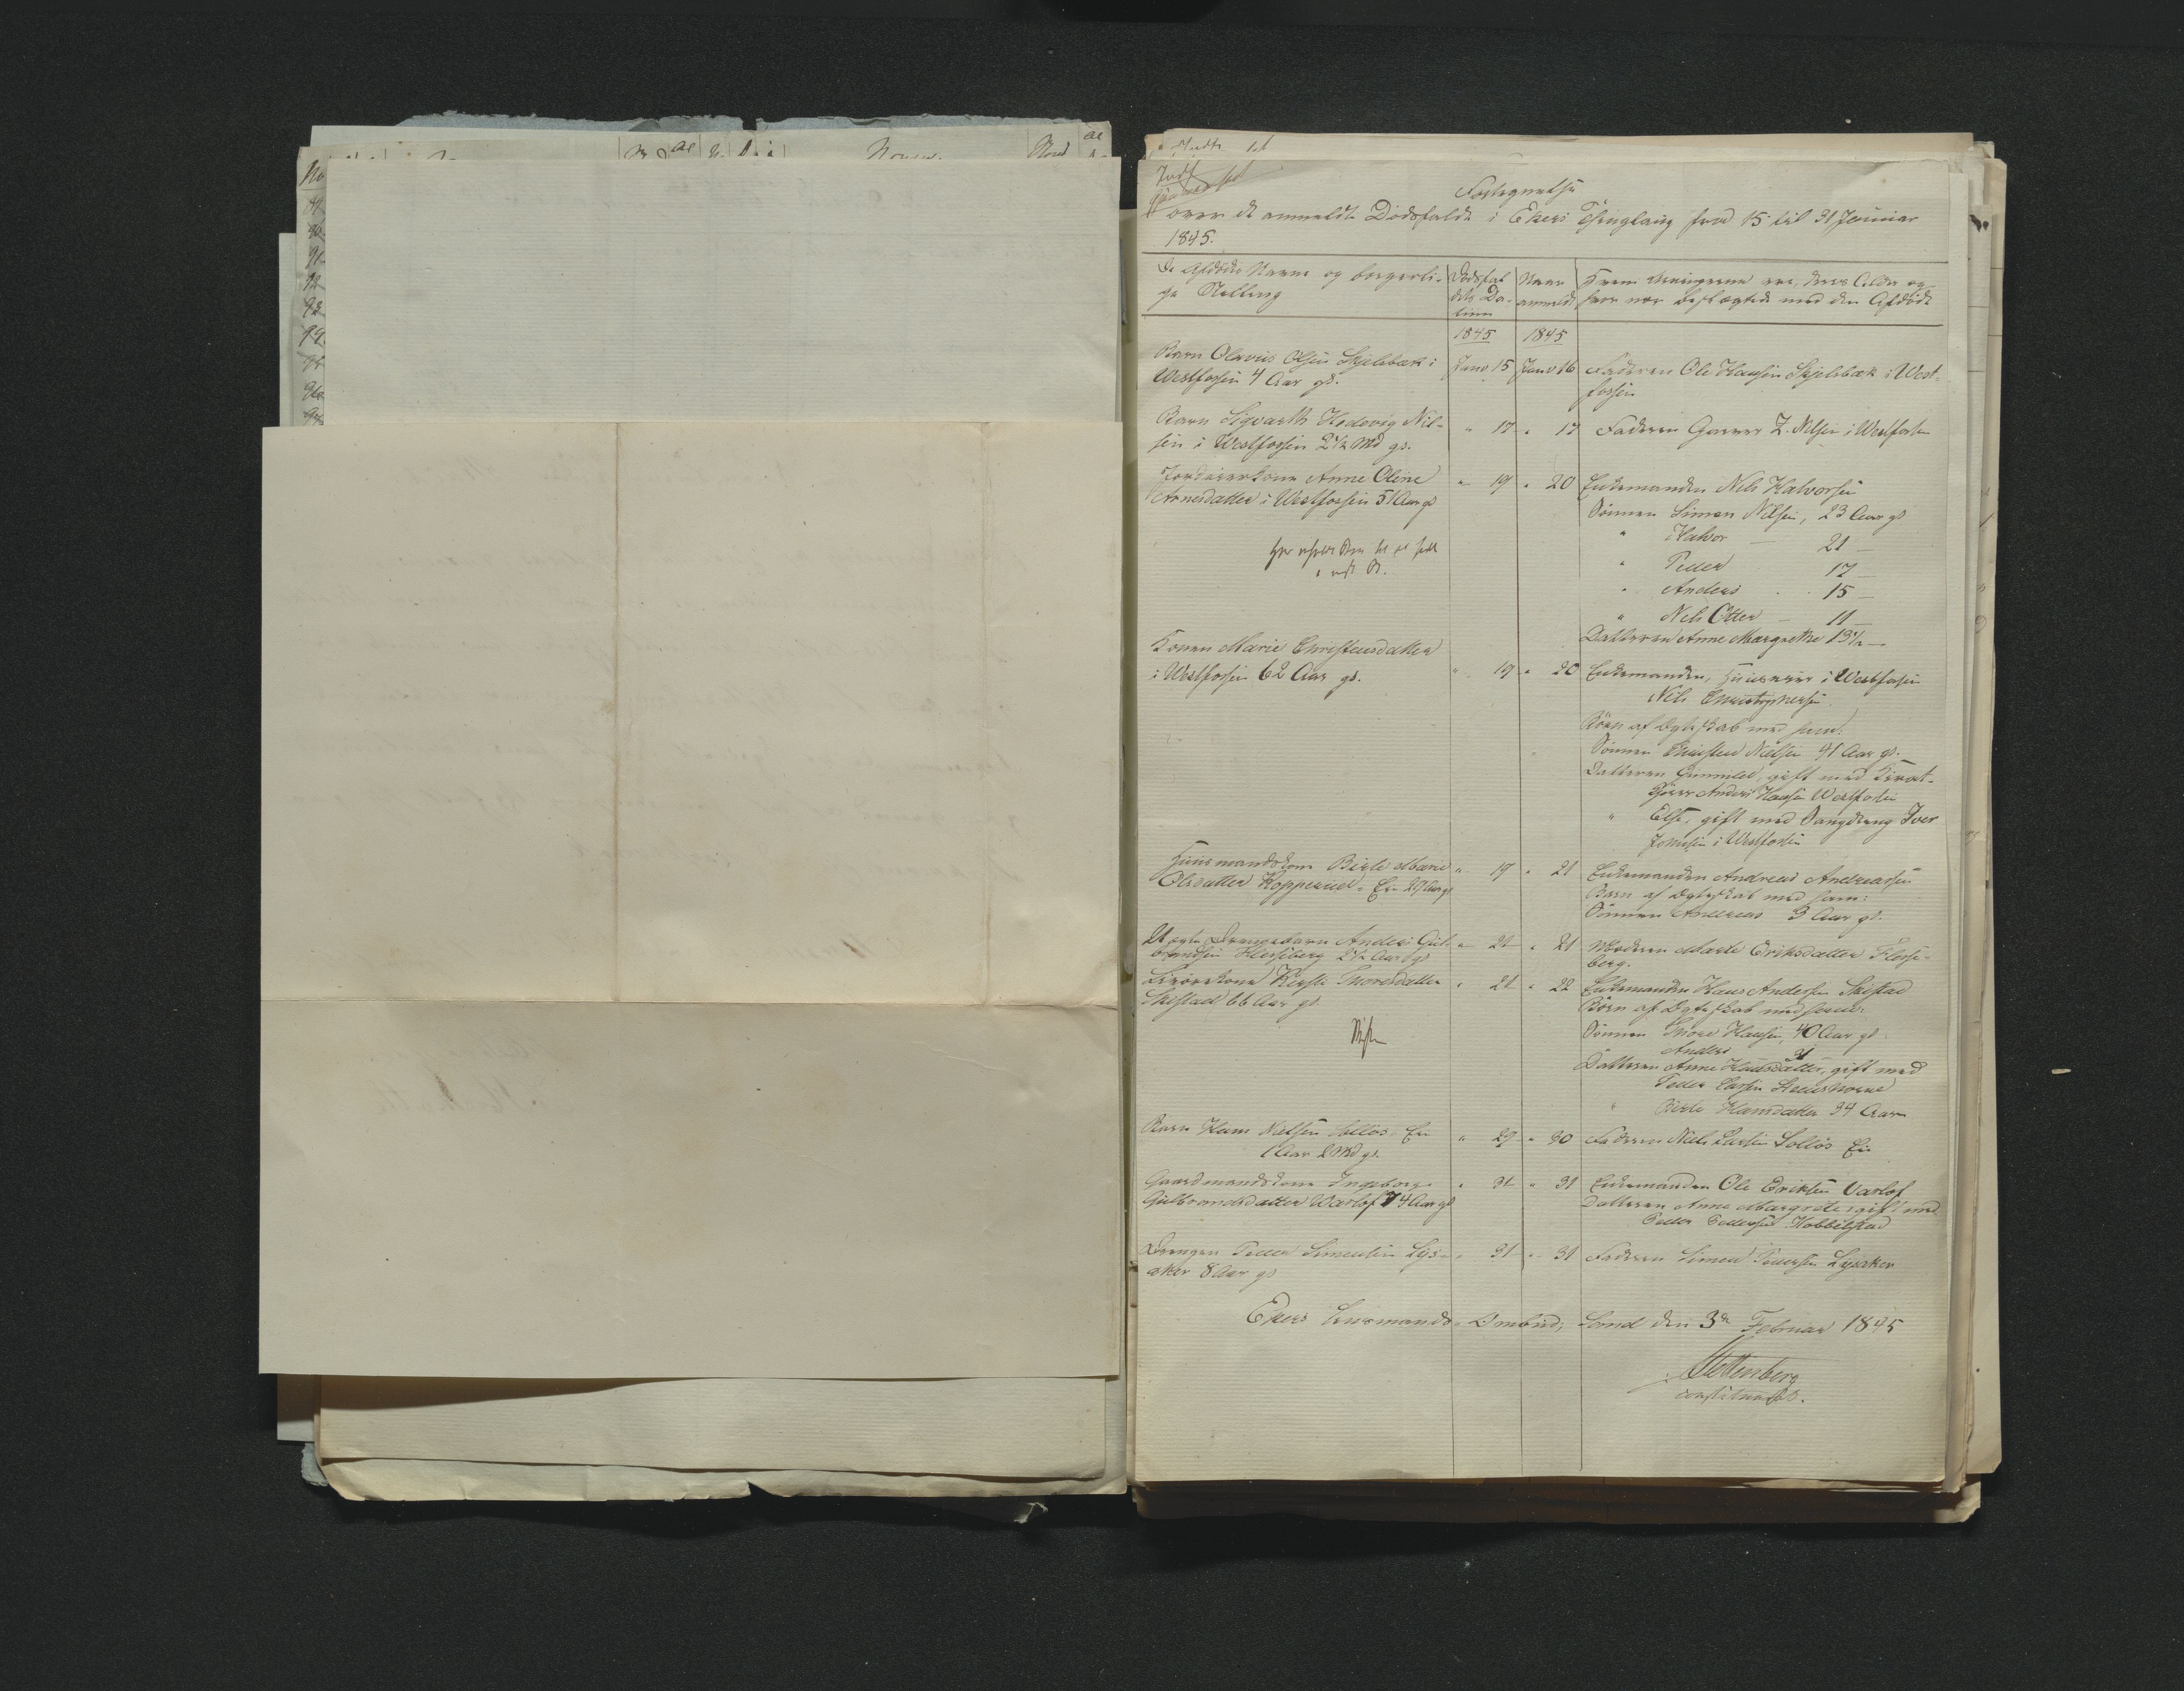 Fortegnelse
over de anmeldte Dödsfalde i Ekers Thinglaug fra 15 til 31 Januar
1845.
De Afdödes Navne og borgerli-
ge Stilling
Dödsfal
dets Da-
tum
Naar
anmeldt
Hvem Arvingerne ere, deres Alder og
hvor nær beslægtede med den Afdöde
1845 1845
Barn Olavus Olsen Skjelsbæk i
Westfossen 4 Aar gl.
Janr 15 Janr 16 Faderen Ole Hansen Skjelsbæk i West-
fossen
Barn Sigvarth Hedevig Nil-
sen i Westfossen 2 1/2 Md gl.
" 17 " 17 Faderen Garver Z. Nilsen i Westfossen
Jordeierkone Anne Oline
Arnesdatter i Westfossen 51 Aar gl
" 19 " 20 Enkemanden Nils Halvorsen
Sönnen Simen Nilsen, 23 Aar gl
" Halvor — 21 —
" Peder 17 —
" Anders 15 —
" Nils Otter — 11 —
Datteren Anne Margrethe 13 1/2 —
Konen Marie Christensdatter
i Westfossen 62 Aar gl.
" 19 " 20 Enkemanden, Huuseier i Westfossen
Nils Christophersen
Börn af Ægteskab med ham:
Sönnen Christen Nielsen 41 Aar gl.
Datteren Gunnild, gift med
Anders Hansen Westfossen
" Else, gift med Saugdreng Iver
Johnsen i Westfossen
Huusmandskone Birte Marie
Olsdatter Kopperud - Eie 29 Aar gl
" 19 " 21 Enkemanden Andreas Andreassen
Barn af Ægteskab med ham:
Sönnen Andreas 3 Aar gl.
Uægte Drengebarn Anders Gul-
brandsen Flesseberg 2 1/2 Aar gl
" 21 " 21 Moderen Marte Eriksdatter Flesse-
berg.
Kirsti Thoresdatter
Skistad 66 Aar gl.
" 21 " 22 Enkemanden Hans Andersen Skistad
Börn af Ægteskab med ham:
Sönnen Thore Hansen, 40 Aar gl.
Anders
Datteren Anne Hansdatter, gift med
Peder Larsen
" Birte Hansdatter 34 Aar
Barn Hans Nielsen Solløs - Eie
1 Aar 2 Md gl.
" 29 " 30 Faderen Niels Larsen Solløs Eie
Gaardmandskone Ingeborg
Gulbrandsdatter Warlof 74 Aar gl
" 31 " 31 Enkemanden Ole Eriksen Varlof
Datteren Anne Margrete, gift med
Peder Pedersen Hobbelstad
Drengen Peder Simensen Lys-
aker 8 Aar gl
" 31 " 31 Faderen Simen Pedersen Lysaker
Ekers Lensmands-Ombud, Sand den 3de Februar 1845
Stottenberg
constitueret.